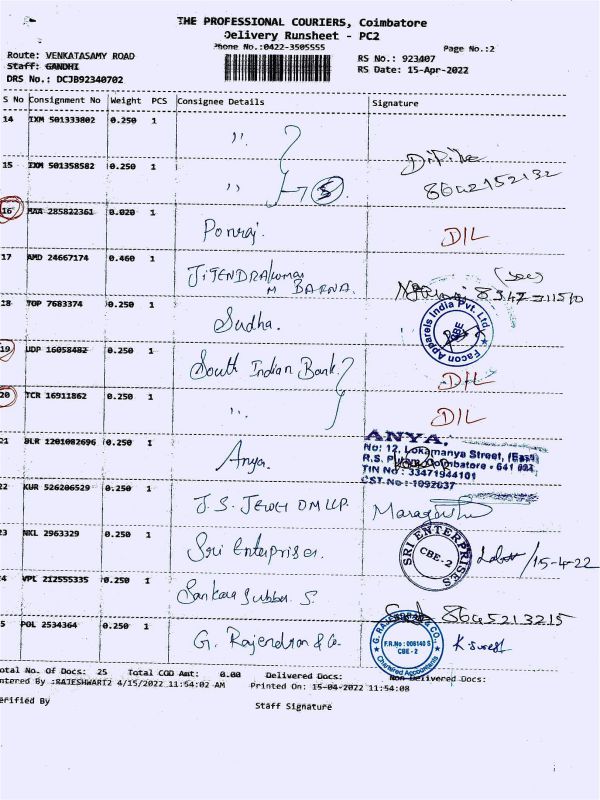 THE PROFESSIONAL COURIERS, Coimbatore
Delivery Runsheet - PC2
Phone No.:0422-3505555
Page No.:2
Route: VENKATASAMY ROAD
RS No.: 923407
Staff: GANDHI
RS Date: 15-Apr-2022
DRS No.: DCJB92340702
S No Consignment No Weight PCS Consignee Details Signature
14 IXM 501333802 0.250 1
15 IXM 501358582 0.250 1
5
8642152132
16 MAA 285822361 0.020 1
Ponraj. DIL
17 AMD 24667174 0.460 1
JITENDRAkumar
M BARNA.
18 TOP 7683374 0.250 1
Sudha.
Facon Apparels India Pvt. Ltd.
CBE
19 UDP 16058482 0.250 1
South Indian Bank. DIL
20 TCR 16911862 0.250 1
,, DIL
21 BLR 1201082696 0.250 1
Anya.
ANYA.
No: 12, Lokamanya Street, (East)
R.S. Coimbatore - 641 002
TIN No : 33471944101
CST No : 1092037
22 KUR 526206529 0.250 1
23 NKL 2963329 0.250 1
Sri Enterprises.
SRI ENTERPRISES
CBE-2
/15-4-22
24 VPL 212555335 0.250 1
Sankara Subbu. S.
8645213215
25 POL 2534364 0.250 1
G. Rajendran & Co.
G. RAJENDRAN & CO.,
F.R.No : 006140 S
CBE - 2
Chartered Accountants
K suresh
Total No. Of Docs: 25 Total COD Amt: 0.00 Delivered Docs: Non Delivered Docs:
Entered By :RAJESHWARI2 4/15/2022 11:54:02 AM Printed On: 15-04-2022 11:54:08
Verified By
Staff Signature